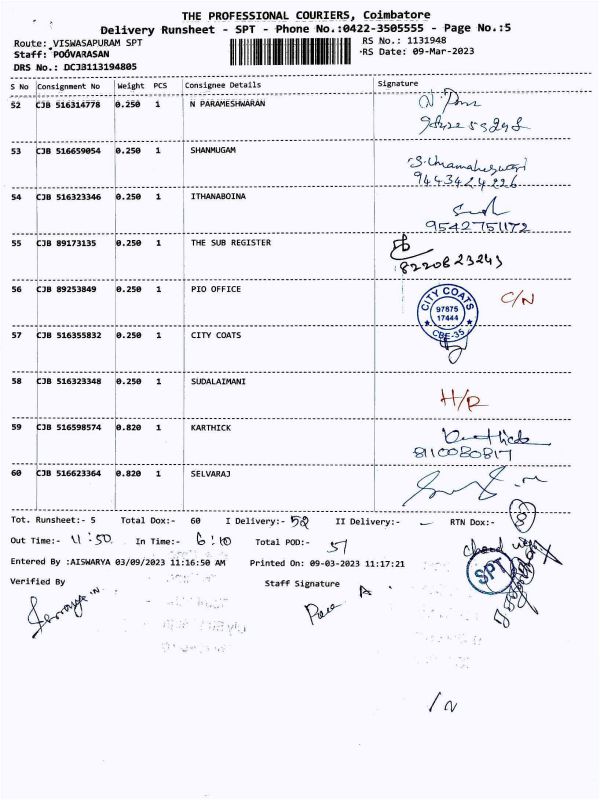 THE PROFESSIONAL COURIERS, Coimbatore
Delivery Runsheet - SPT - Phone No.:0422-3505555 - Page No.:5
Route: VISWASAPURAM SPT
RS No.: 1131948
Staff: POOVARASAN
RS Date: 09-Mar-2023
DRS No.: DCJB113194805
S No Consignment No Weight PCS Consignee Details Signature
52 CJB 516314778 0.250 1 N PARAMESHWARAN
53 CJB 516659054 0.250 1 SHANMUGAM
9443424226
54 CJB 516323346 0.250 1 ITHANABOINA
9542751172
55 CJB 89173135 0.250 1 THE SUB REGISTER
56 CJB 89253849 0.250 1 PIO OFFICE C/N
CITY COATS
97875
17444
CBE-35
57 CJB 516355832 0.250 1 CITY COATS
58 CJB 516323348 0.250 1 SUDALAIMANI
H/R
59 CJB 516598574 0.820 1 KARTHICK
8110080817
60 CJB 516623364 0.820 1 SELVARAJ
Tot. Runsheet:- 5 Total Dox:- 60 I Delivery:- 52 II Delivery:- - RTN Dox:- 8
Out Time:- 11:50 In Time:- 6:10 Total POD:- 51
Entered By :AISWARYA 03/09/2023 11:16:50 AM Printed On: 09-03-2023 11:17:21
SPT
Verified By Staff Signature